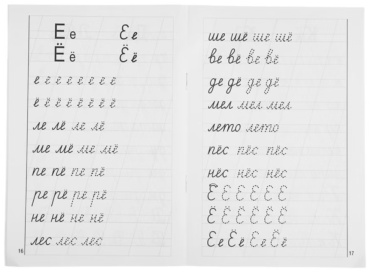 Е е Е е
Ё ё Ё ё
е ё ё ё ё ё ё ё
ё ё ё ё ё ё ё ё
ле лё лё лё
ме мё ме мё
пе пё пё пё
ре рё рё рё
не нё нё нё
лес лес лес
16
ше шё ше шё
ве вё вё вё
де дё де дё
мел мел мел
лето лето
пёс пёс пёс
нёс нёс нёс
Ё Ё Ё Ё Ё Ё
Ё Ё Ё Ё Ё Ё
Ее Ёё Ее Ёё
17